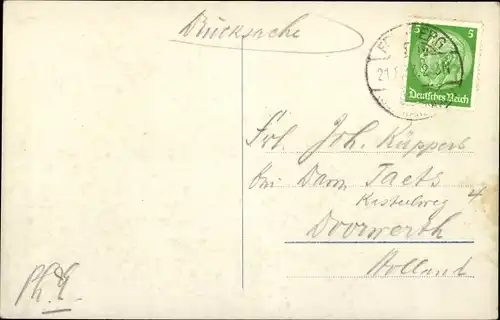 Drucksache
5 5
Deutsches Reich
Frl. Joh. Küppers
bei Dam Taets
Kastelweg 4
Doorwerth
Holland
Ph. E.